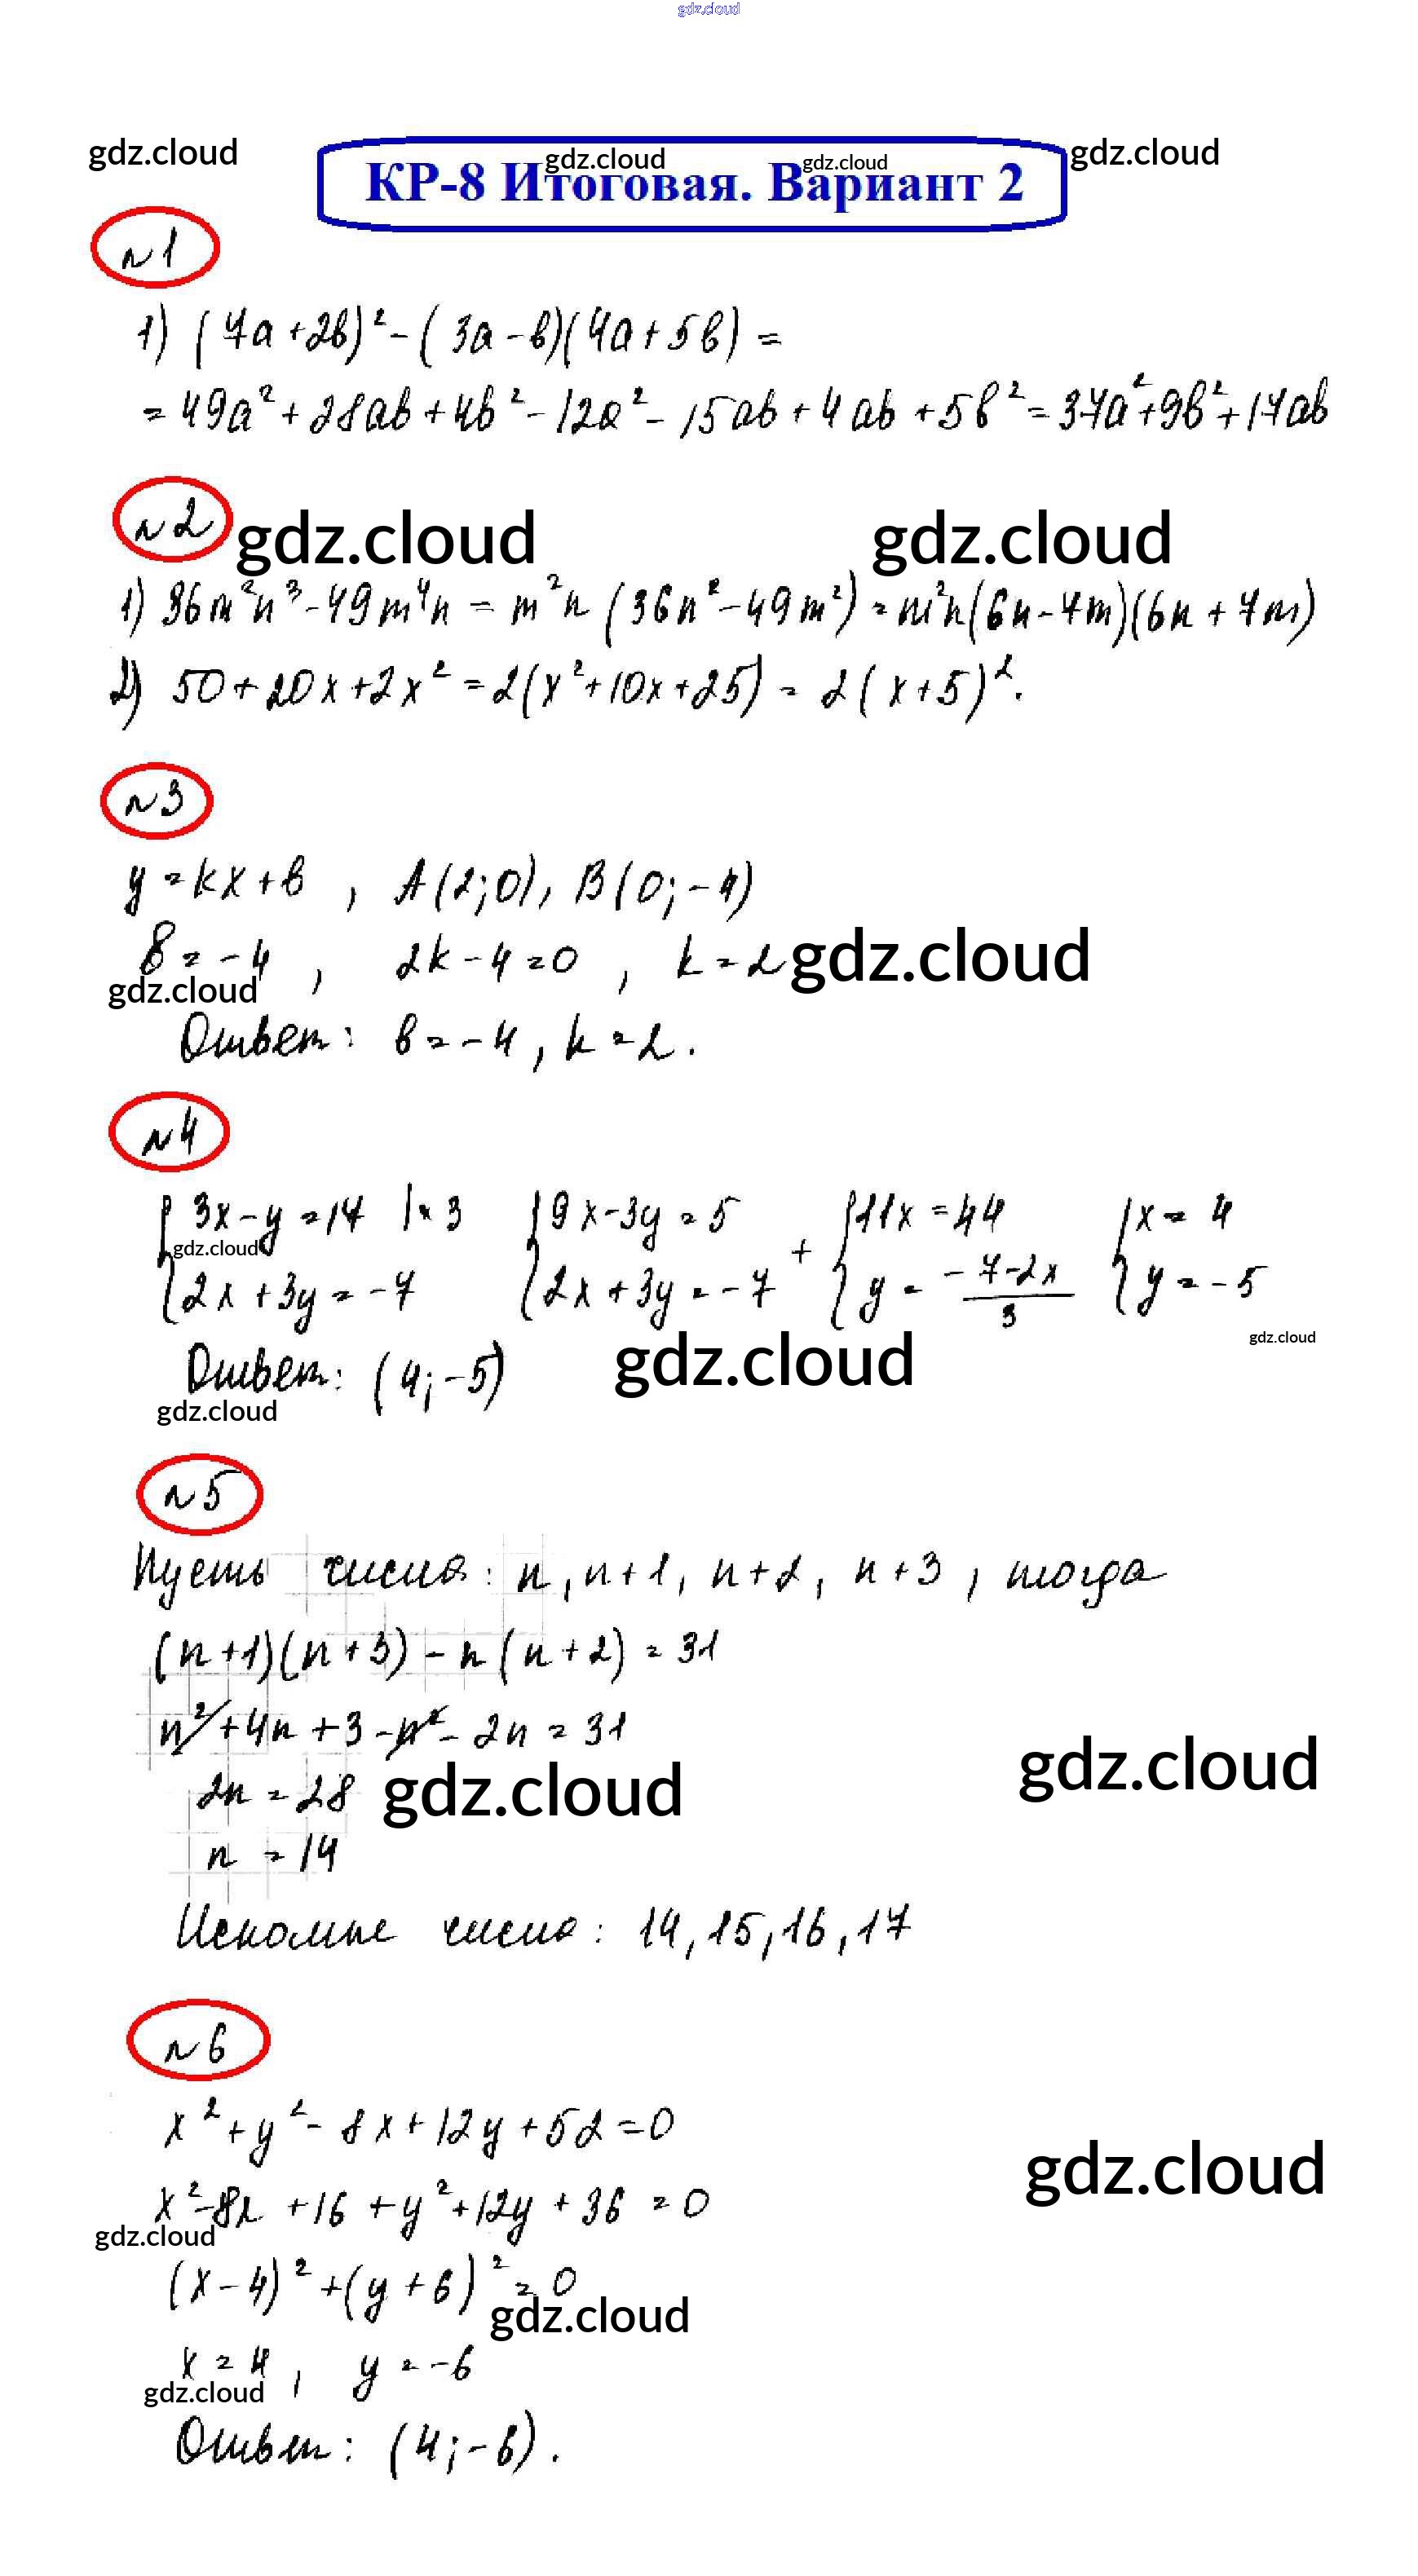 gdz.cloud
gdz.cloud gdz.cloud gdz.cloud gdz.cloud
КР-8 Итоговая. Вариант 2
№1
1) (7a+2b)² - (3a-b)(4a+5b) =
= 49a² + 28ab + 4b² - 12a² - 15ab + 4ab + 5b² = 37a² + 9b² + 17ab
№2 gdz.cloud gdz.cloud
1) 36m²n³ - 49m⁴n = m²n (36n² - 49m²) = m²n(6n-7m)(6n+7m)
2) 50 + 20x + 2x² = 2(x² + 10x + 25) = 2(x+5)².
№3
y = kx + b , A(2;0), B(0;-4)
b = -4 , 2k - 4 = 0 , k = 2 gdz.cloud
gdz.cloud
Ответ: b = -4, k = 2.
№4
{3x - y = 17 |·3 {9x - 3y = 5 + {11x = 44 {x = 4
gdz.cloud
{2x + 3y = -7 {2x + 3y = -7 {y = (-7-2x)/3 {y = -5
gdz.cloud gdz.cloud
Ответ: (4; -5)
gdz.cloud
№5
Пусть числа: n, n+1, n+2, n+3, тогда
(n+1)(n+3) - n(n+2) = 31
n² + 4n + 3 - n² - 2n = 31
2n = 28 gdz.cloud gdz.cloud
n = 14
Искомые числа: 14, 15, 16, 17
№6
x² + y² - 8x + 12y + 52 = 0
gdz.cloud
x² - 8x + 16 + y² + 12y + 36 = 0
gdz.cloud
(x-4)² + (y+6)² = 0
gdz.cloud
x = 4 , y = -6
gdz.cloud
Ответ: (4; -6).